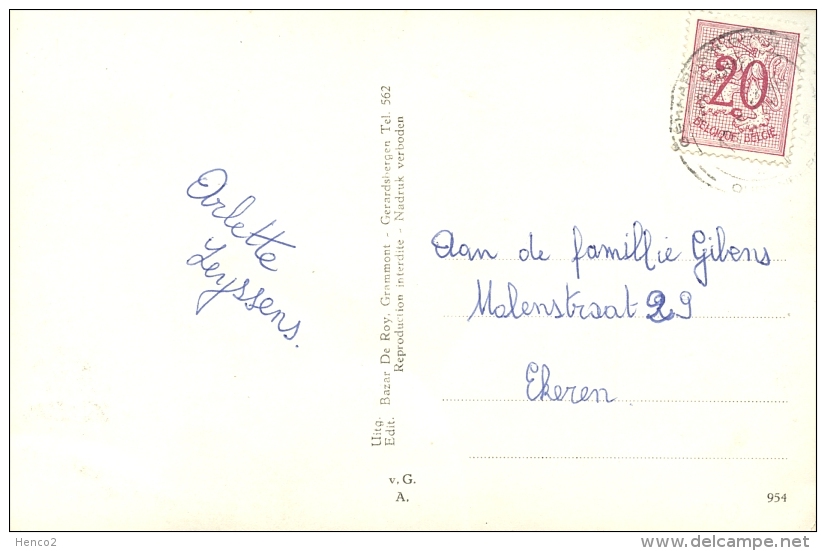 Arlette
Leyssens.
Uitg.
Edit. Bazar De Roy, Grammont - Gerardsbergen Tel. 562
Reproduction interdite - Nadruk verboden
v. G.
A.
20
BELGIQUE·BELGIË
Aan de famillie Gibens
Molenstraat 29
Ekeren
954
Henco2
delcampe.net